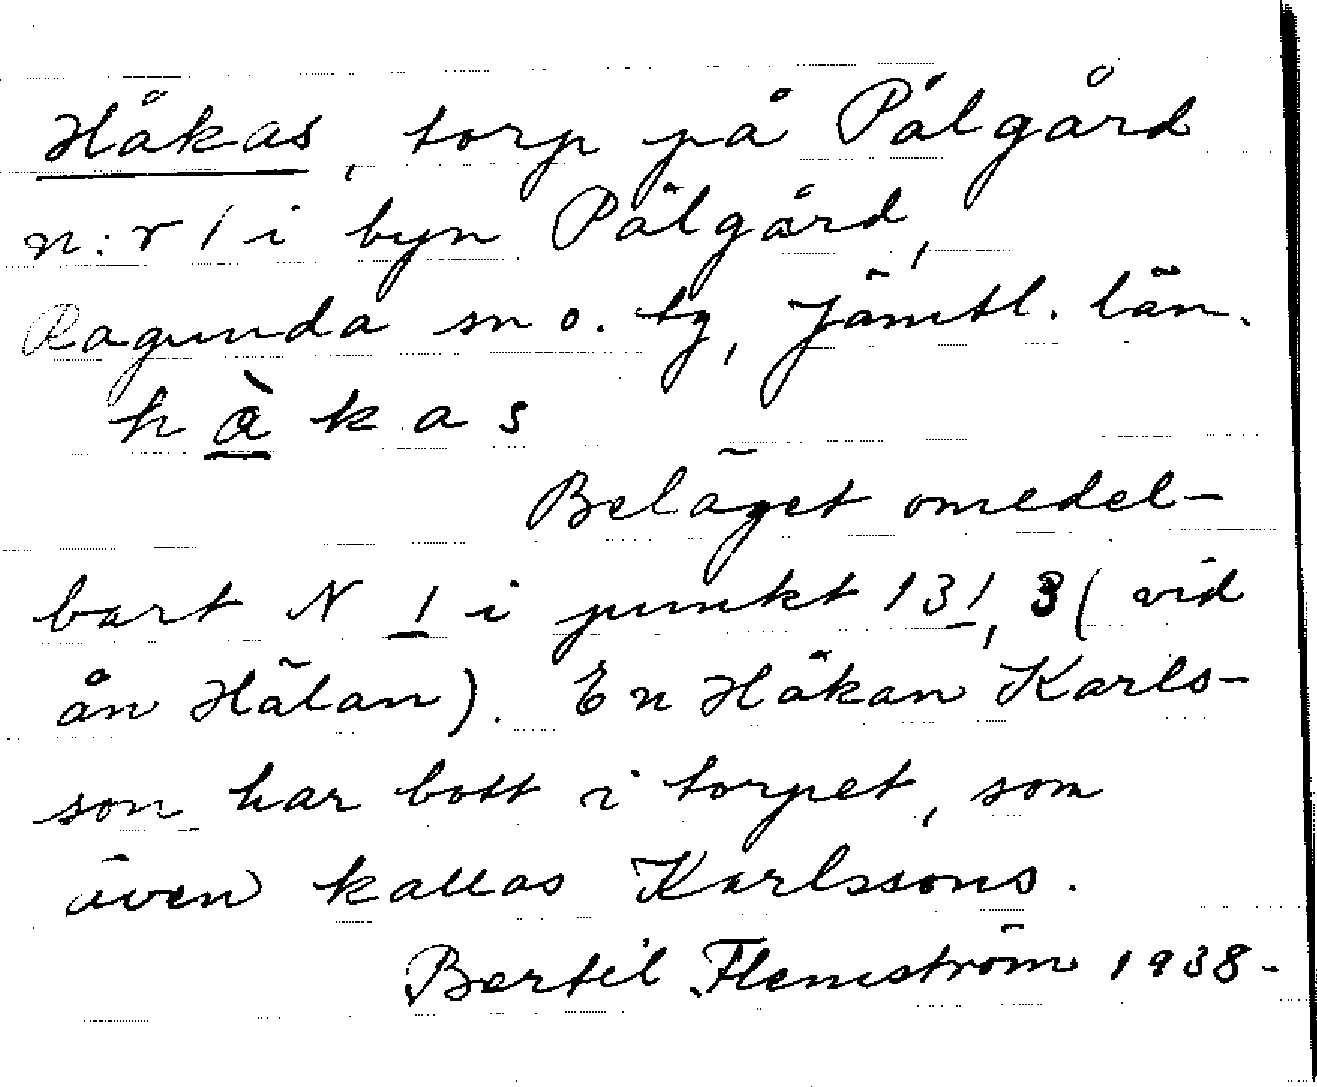 Håkas, torp på Pålgård
n:r 1 i byn Pålgård,
Ragunda sn o. tg, Jämtl. län.
hå̀kas
Beläget omedel-
bart N 1 i punkt 131,3 (vid
ån Hälan). En Håkan Karls-
son har bott i torpet, som
även kallas Karlssons.
Bertil Flemström 1938.